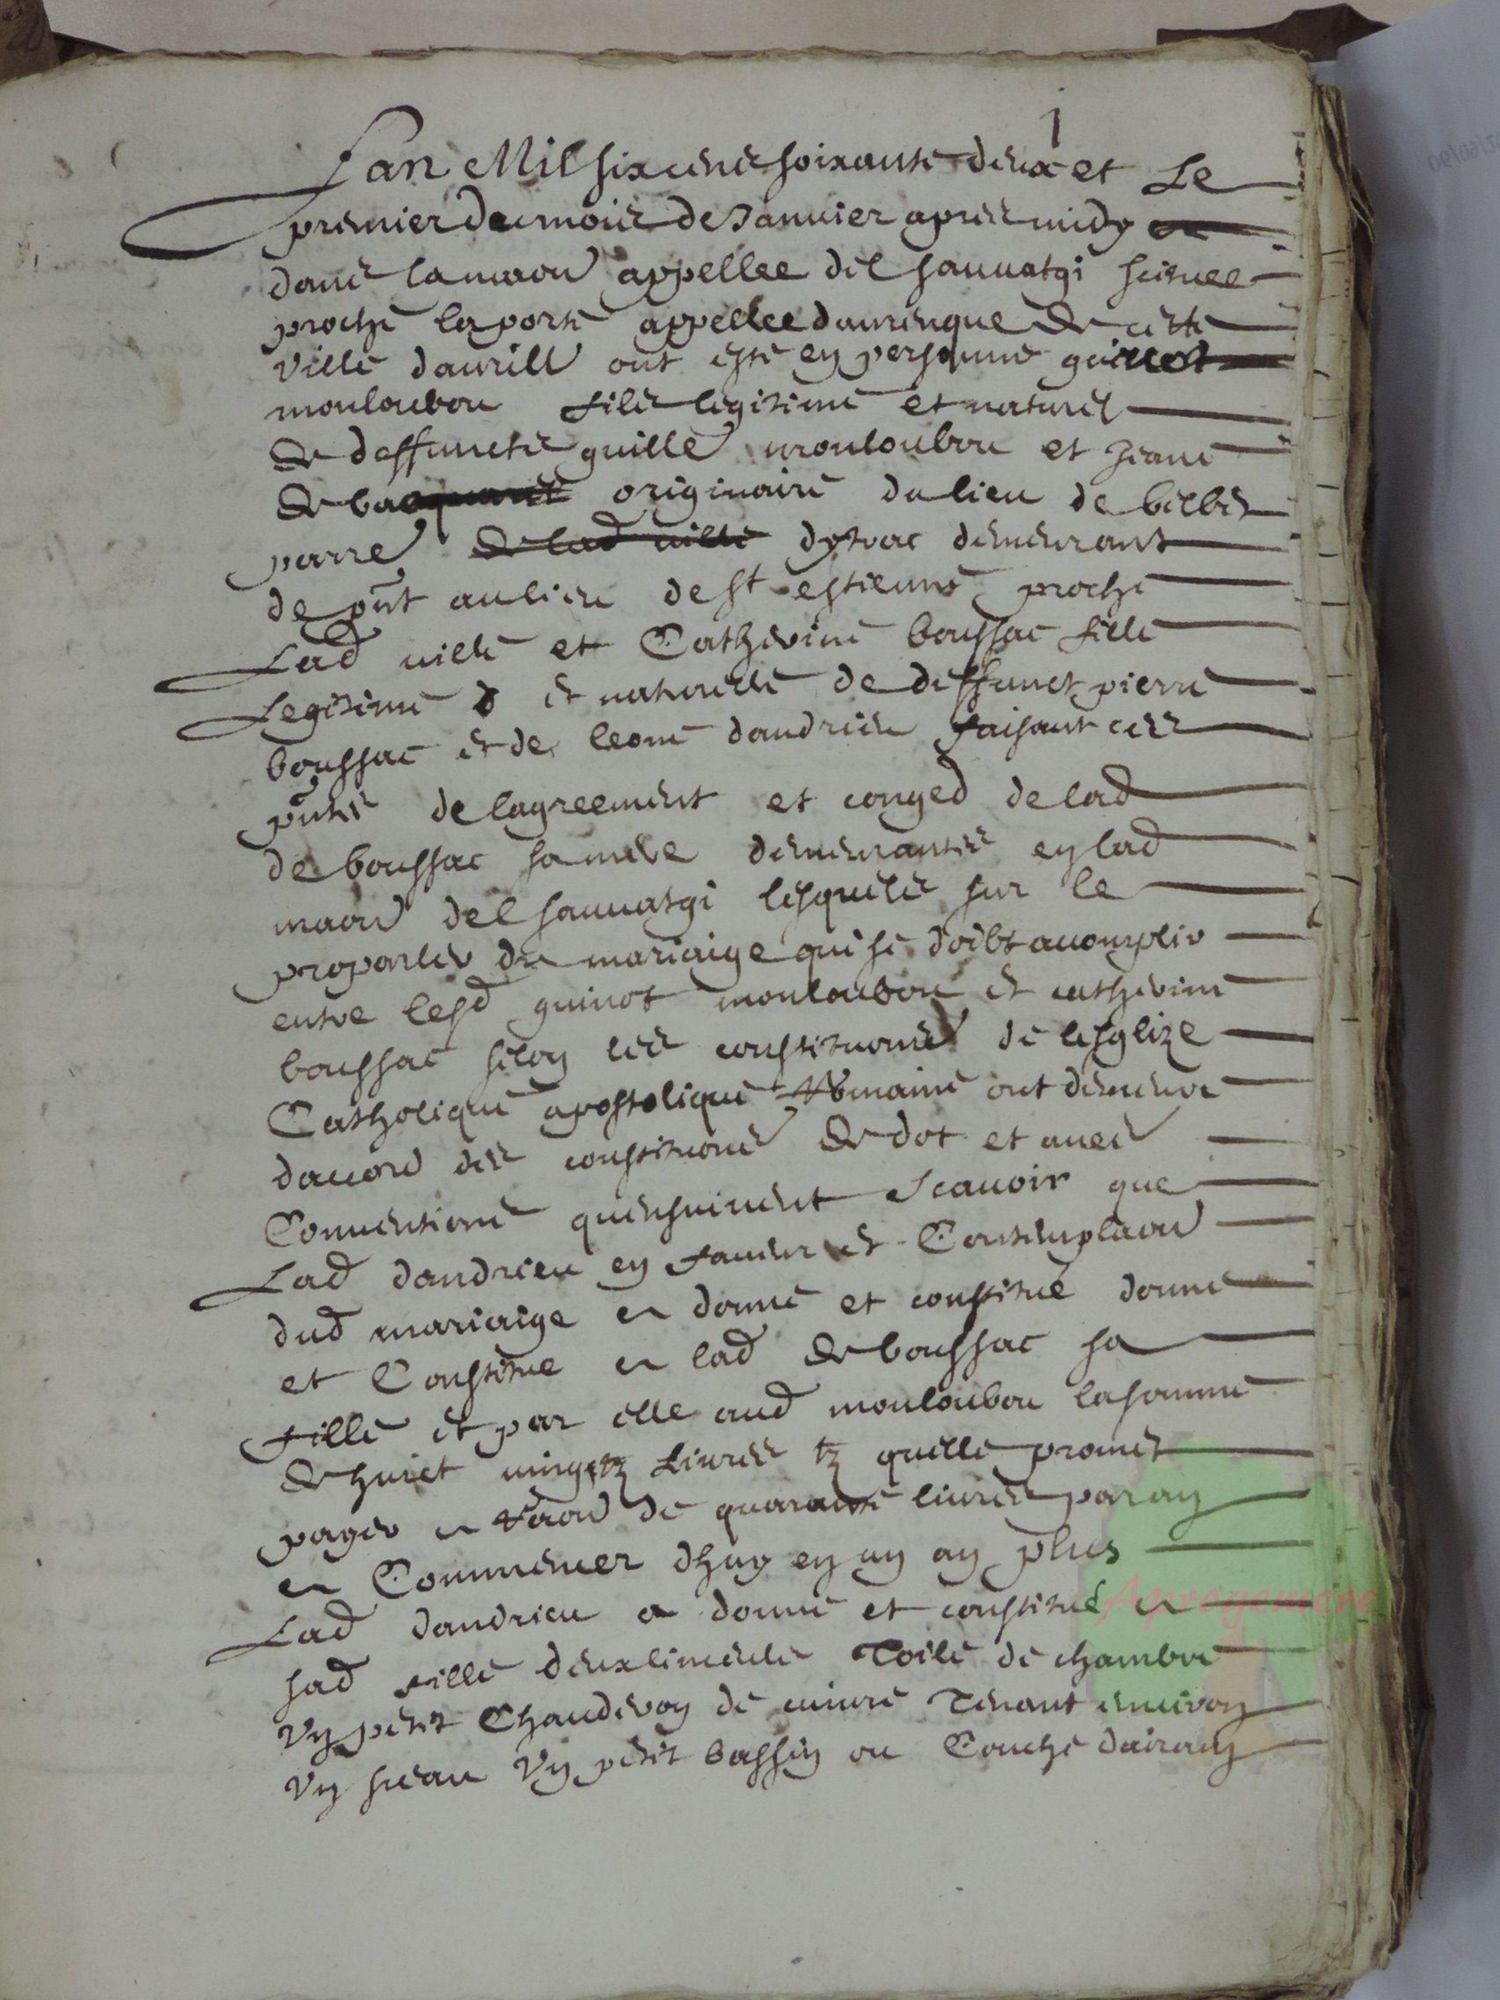 1
Lan Mil six cens soixante deux et Le
premier du mois de Janvier apres midy
dans la maon appellee del sauvatgi scituee
proche la porte appellee daurinque de cette
ville daurill ont este en personne guinot
mouloubou fils legitime et naturel
de deffuncts guille mouloubou et Jeane
de originaire du lieu de belbes
parre de lad ville dytrac demeurant
de pnt au lieu de st estienne proche
Lad ville et Catherine boussac fille
Legitime et naturelle de deffunct pierre
boussac et de leone dandrieu faisant ces
pntes de lagreement et conged de lad
de boussac sa mere demeurantes en lad
maon del sauvatgi lesquels sur le
propariler du mariaige qui se doibt accomplir
entre lesd guinot mouloubou et catherine
boussac selon les constituons de lesglize
Catholique apostolique Romaine ont demeure
daccord des constituons de dot et aues
Conventions quensuivent Scavoir que
Lad dandrieu en faveur et Contemplaon
dud mariaige a donne et constitue donne
et Constitue a lad de boussac sa
fille et par elle aud mouloubou la somme
de huict vingtz Livres tz quelle promet
payer a raon de quarante livres par an
a Commencer dhuy en un an plus
Lad dandrieu a donne et constitué a
sad fille deux linceuls Toile de chambre
Un petit Chauderon de cuivre Tenant environ
Un seau Un petit bassin ou Couche dairain
Auvergnemere